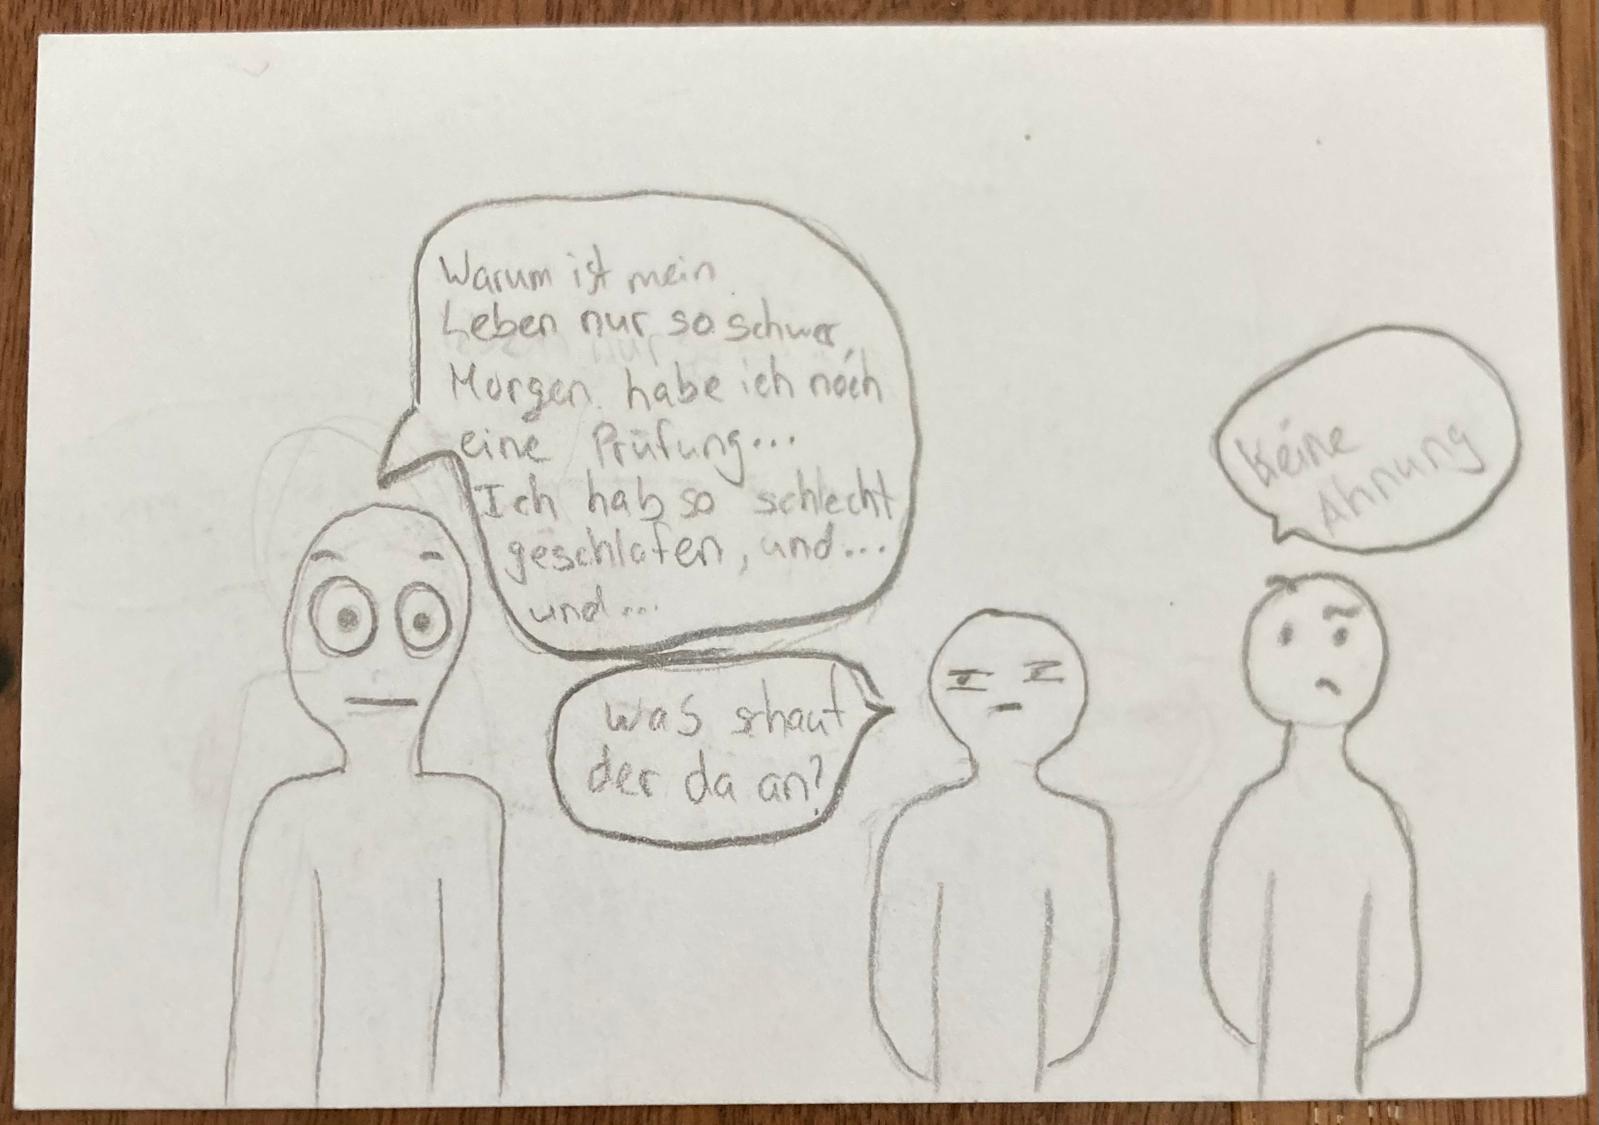 Warum ist mein
Leben nur so schwer,
Morgen habe ich noch
eine Prüfung...
Ich hab so schlecht
geschlafen, und...
und...
was schaut
der da an?
Keine
Ahnung